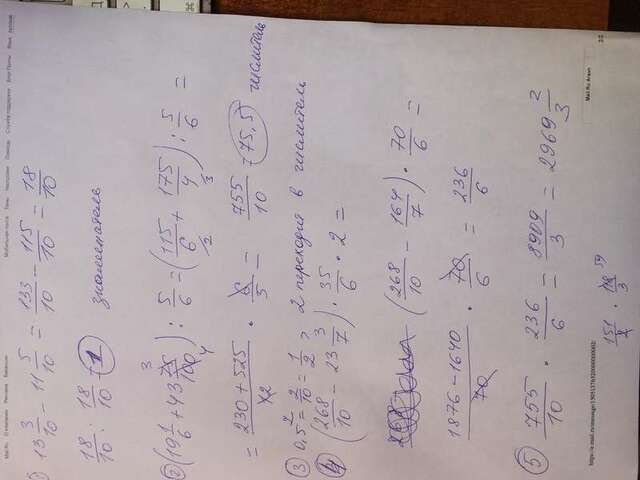 Mail.Ru О компании Реклама Вакансии Мобильная почта Темы Настройки Помощь Служба поддержки Блог Почты Язык русский
1) 13 3/10 - 11 5/10 = 133/10 - 115/10 = 18/10
18/10 : 18/10 = 1 знаменатель
2 (19 1/6 + 43 75/100) : 5/6 = (115/6 + 175/4) : 5/6 =
= 230 + 525/12 · 6/5 = 755/10 = 75,5 числитель
3 0,5 = 2/10 = 1/2, 2 переходит в числитель
4 (268/10 - 23 3/7) · 35/6 · 2 =
(268/10 - 164/7) · 70/6 =
1876 - 1640/70 · 70/6 = 236/6
5 755/10 · 236/6 = 8909/3 = 2969 2/3
https://e.mail.ru/message/15051376320000000002/
Mail.Ru Агент
2/2
151/2 · 118/3 59